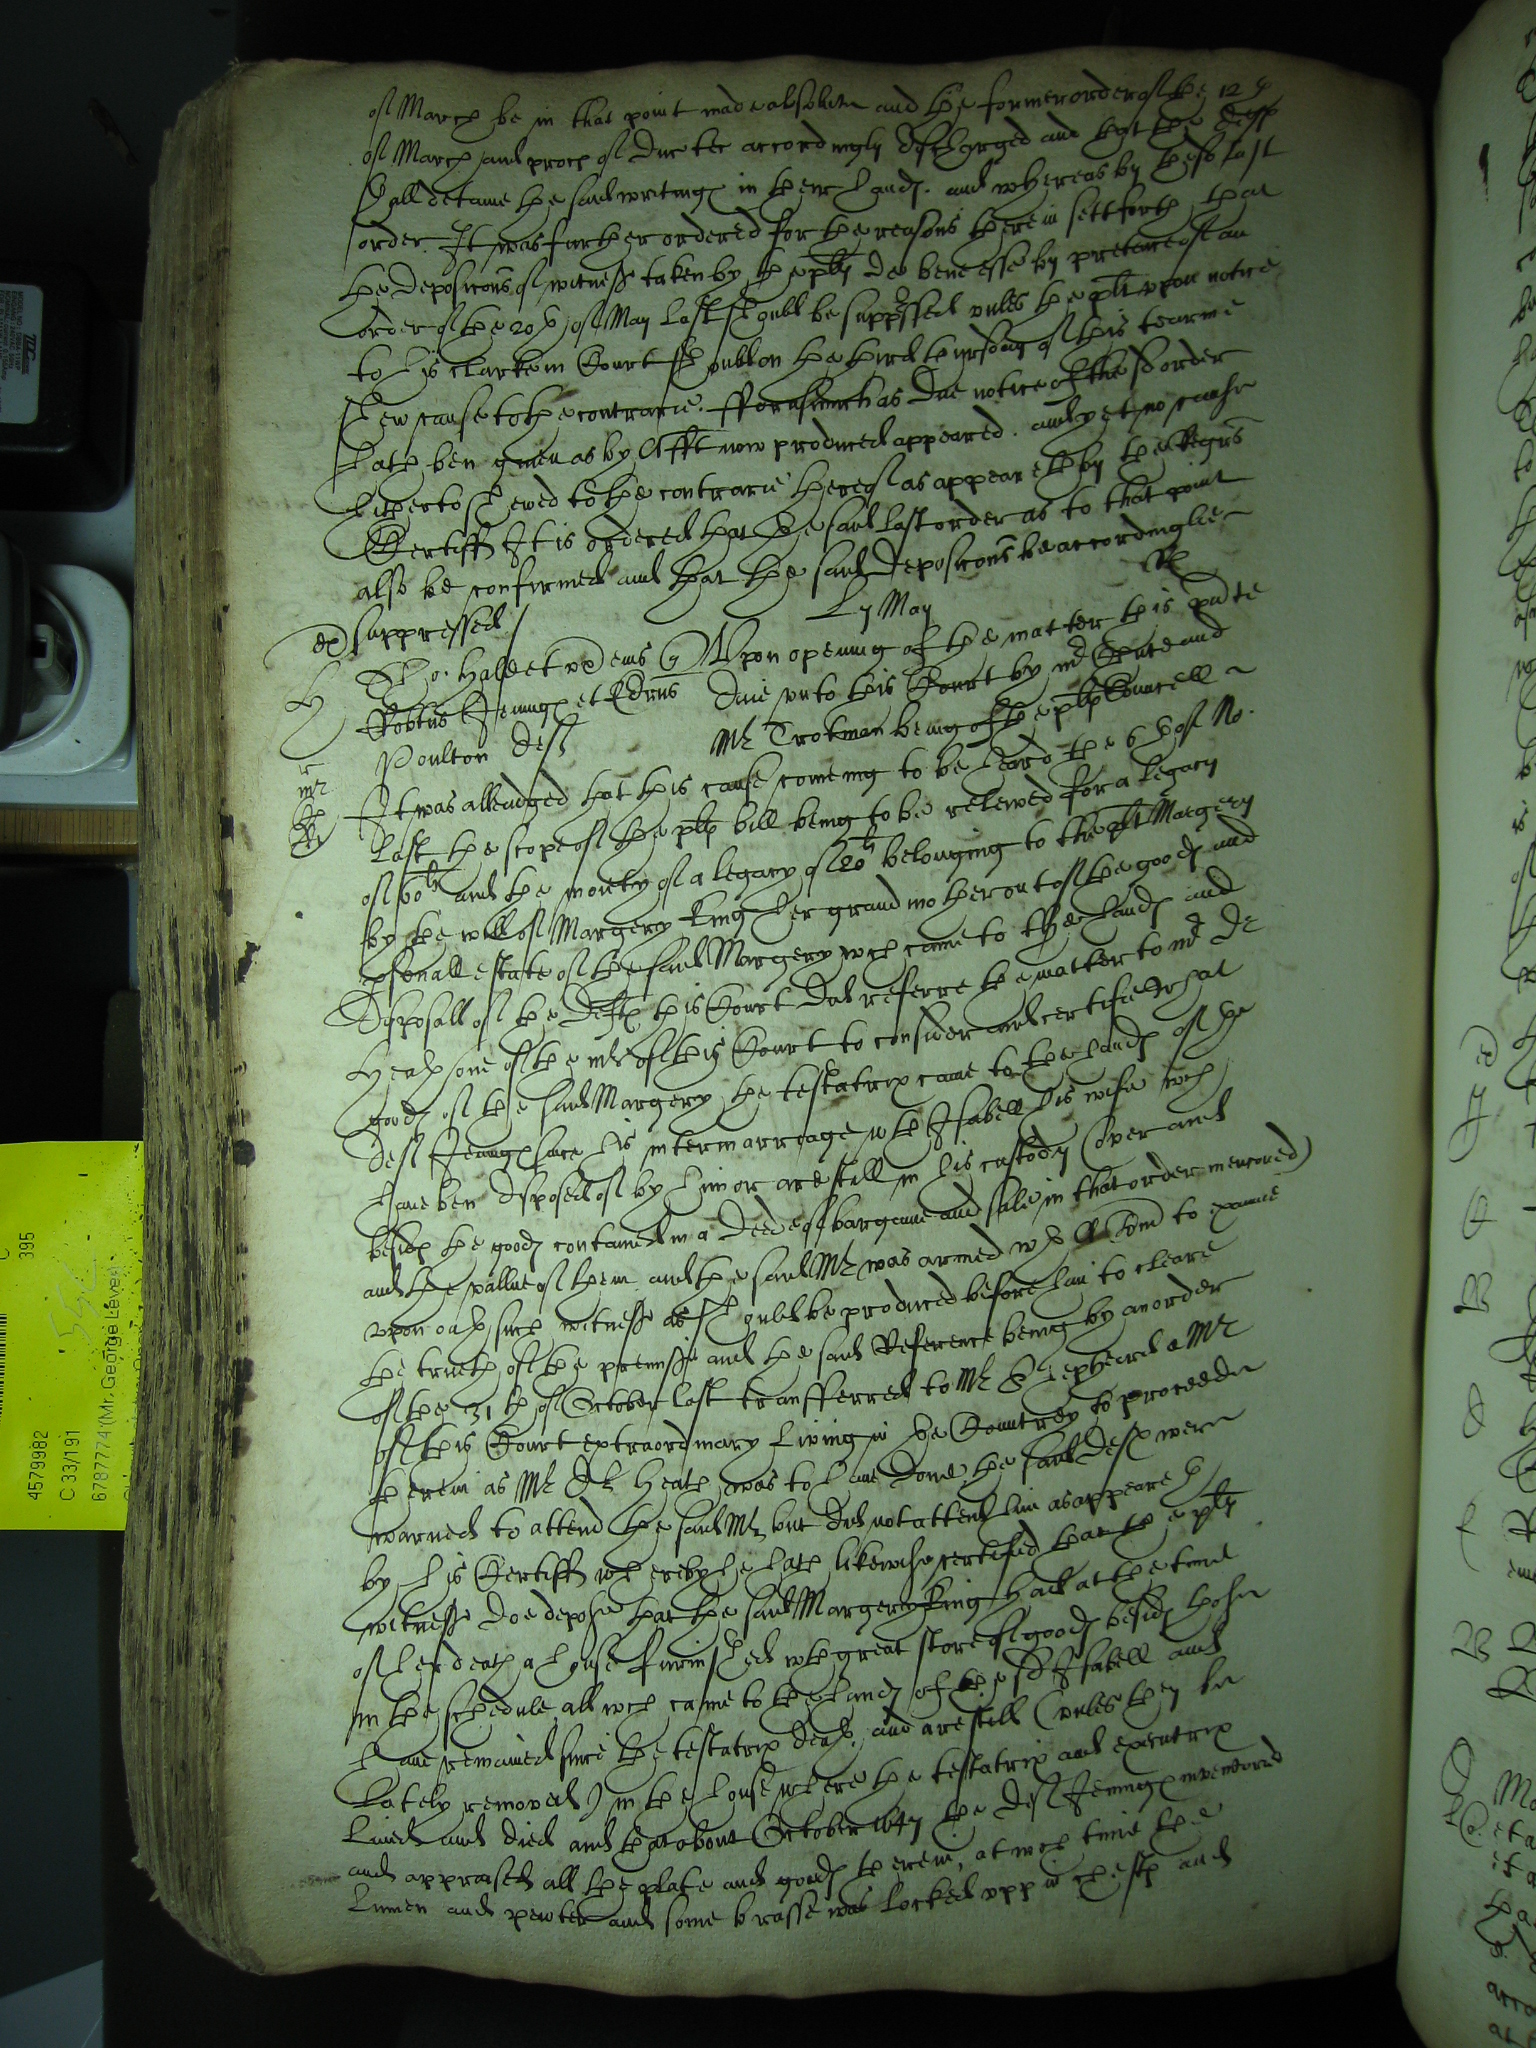 of March be in that point made absolute and the former order of the 12th
of March and proces of ducter accordingly discharged and that the deftes
shall detaine the said writinges in their handes. and whereas by these last
order It was further ordered for the reasons therein sett forth that
the deposicons of witnesses taken by the plt de bene esse by pretence of an
order of the 20th of May last should be suppressed unles the plt upon notice
to his clarke in Court should on the third thursday of this tearme
shew cause to the contrarie. fforasmuch as due notice of the sd order
hath ben given as by Afft now produced appeared. and yet no cause
hitherto shewed to the contrarie hereof as appeareth by the Regrs
Certifft It is ordered that the said last order as to that point
also be confirmed and that the said deposicons be accordinglie
suppressed /
May
Tho: Hale et ux Quer Upon opening of the matter this pnte
Robtus Jeninges et Edrus daie unto this Court by mr Chute and
Poulton deftes Mr Trotman being of the pltes Councell
It was alleadged that this cause comeing to be heard the 6th of No.
last the scope of the pltes bill being to be releived for a legacy
of li and the moiety of a legacy of 20li belonging to the plt Margery
by the will of Margery King her grandmother out of the goodes and
psonall estate of the said Margery wch came to the handes and
disposall of the deftes this Court did referre the matter to mr Dr
Heath one of the mrs of this Court to consider and certifie what
goodes of the said Margery the testatrix came to the handes of the
deft Jeninges since his intermarriage wth Isabell his wife wch
have ben disposed of by him or are still in his custody (over and
besides the goodes contained in a deede of bargaine and sale in that order menconed)
and the vallue of them and the said Mr was armed wth A Comn to examine
upon oath such witnesses as should be produced before him to cleare
the trueth of the premisses and the said Reference being by an order
of the 31th of October last transferred to Mr Shepheard a Mr
of this Court extraordinary Living in the Countrey to proceede
therein as Mr Dr Heath was to have done, the said deftes were
warned to attend the said Mr but did not attend him as appeareth
by his Certifft whereby he hath likewise certified that the pltes
witnesses doe depose that the said Margery King had at the time
of her death a house furnished wth great store of goodes besides those
in the schedule all wch came to the handes of the sd Isabell and
have remained since the testatrix death, and are still (unles they be
lately removed) in the house where the testatrix and executrix
lived and died and that about October 1647 the deft Jeninges inventoried
and appraised all the plate and goodes therein, at wch time the
linnen and pewter and some brasse was locked upp in chestes and
4579982
C 33/191
6787774 (Mr. George Leveson
395